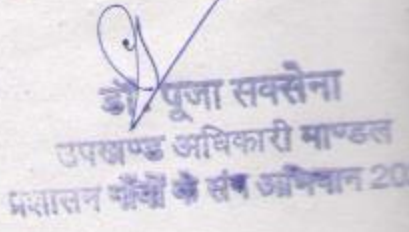 डॉ. पूजा सक्सेना
उपखण्ड अधिकारी माण्डल
प्रशासन गाँवों के संग अभियान 20